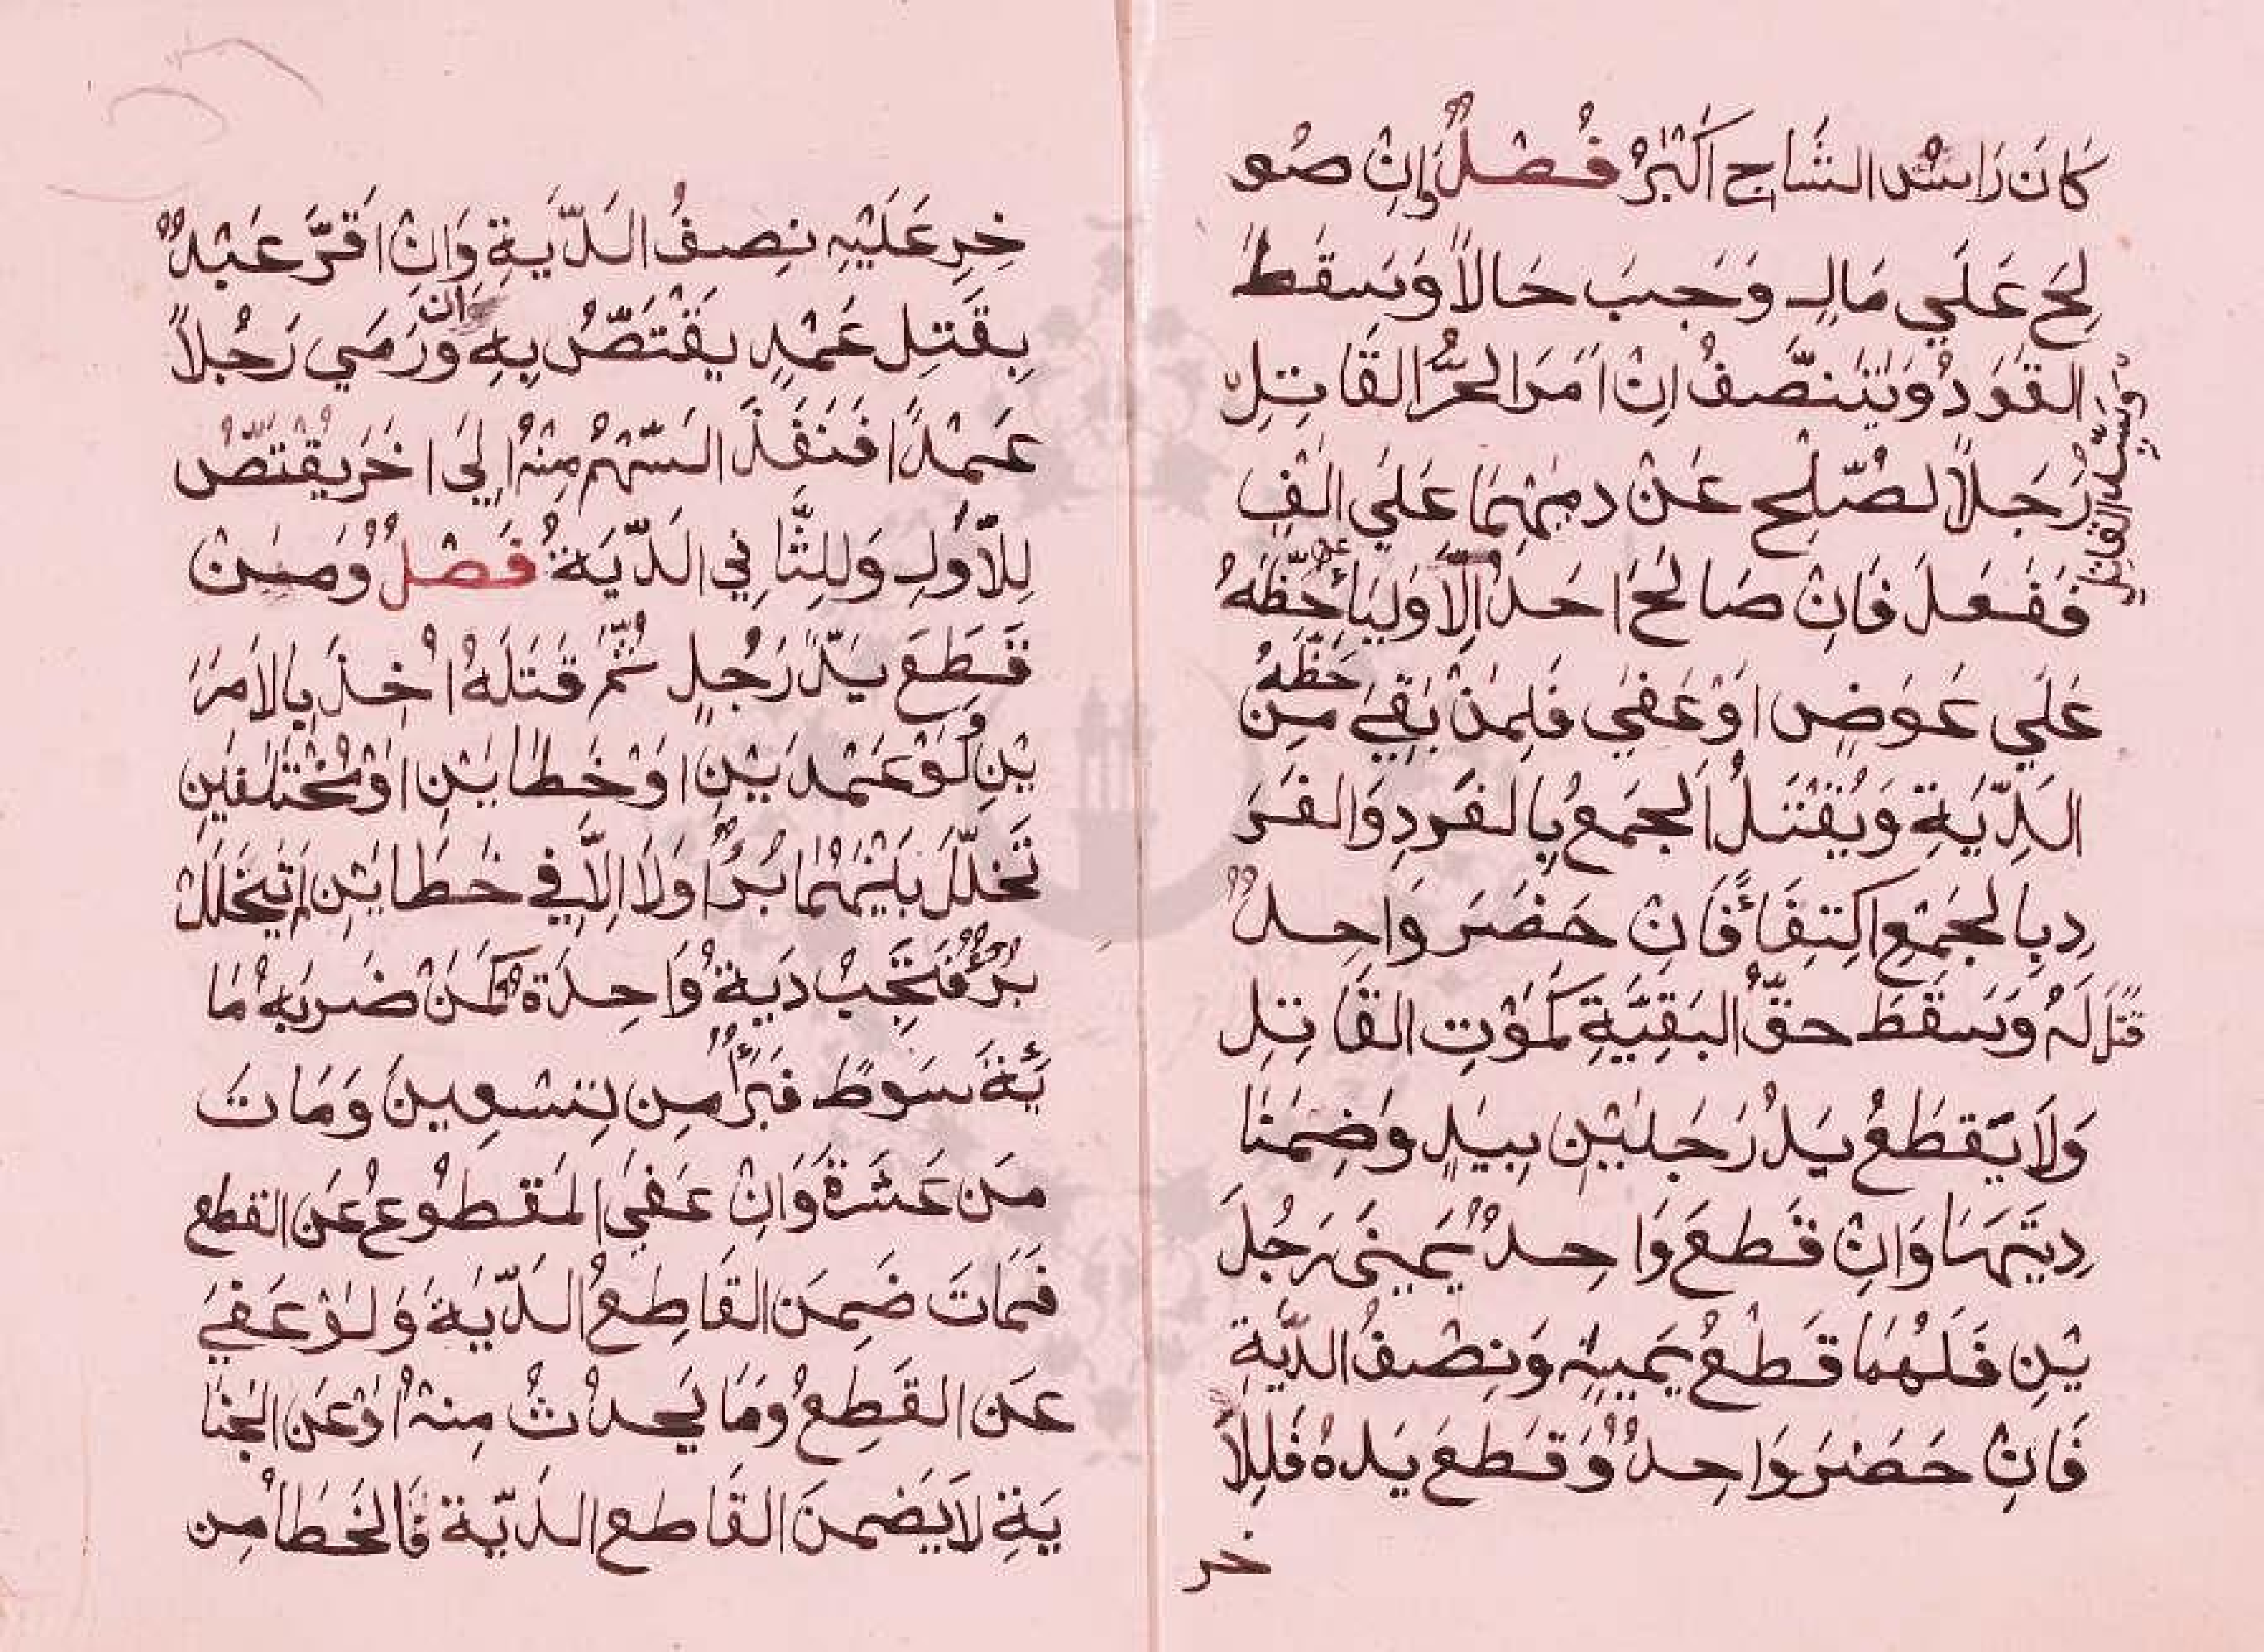 كَانَ رَاسُ الشَّاجِ اَكْبَرُ فَصْلٌ وَاِنْ صُو
لِحَ عَلَي مَالٍ وَجَبَ حَالاً وَيَسقَطُ
القَوَدُ وَيَتَنَصَّفُ اِنْ اَمَرَ الحُرُّ القَاتِلِ
وَسَيِّدُ القَاتِلِ
رَجَلاً لصُّلحِ عَنْ دمِهِمَا عَلَي اَلْفٍ
فَفَعَلَ فَاِنْ صَالَحَ اَحَدُ الاَوَلِيَاءِ عن حَظّهُ
حَظّهُ
عَلَي عَوَضٍ اَوْعَفَي فَلِمَنْ بَقِيَ مِنَ
الدِّيَةِ وَيُقْتَلُ الجَمعُ بِالفَردِ وَالفَر
دِ بِالجَمْعِ اكتِفَاءً فَاِنْ حَضَرَ وَاحِدٌ
قتلَ لَهُ وَسَقَطَ حقُّ البَقِيَّةِ كَمَوْتِ القَاتِلِ
وَلاَ يَقطَعُ يَدُ رَجَلَيْنِ بِيَدٍ وَضِمَنَا
دِيتَهَا وَاِنْ قَطعَ وَاحِدٌ يَمِينَي رَجُلَ
يْنِ فَلَهُمَا قَطْعُ يَمِينِهِ وَنِصْفُ الدِّيَةِ
فَاِنْ حَضَرَ وَاحِدٌ وَقَطَعَ يَدهُ فَلِلاَ
خر
خِرِ عَلَيْهِ نِصفُ الدِّيَةِ وَاِنْ اَقَرَّ عَبْدٌ
بِقَتِل عَمْدٍ يَقْتَصُّ بِهِ وان رَمَي رَجُلاً
عَمْدًا فَنَفَذَ السَّهمُ مِنْهُ اِلَي اخَرَ يُقْتَصّ
لِلاَوَّلِ وَلِلثَّانِي الدِّيَةُ فَصْلٌ وَمَنْ
قَطَعَ يَدَ رَجُلٍ ثُمَّ قَتَلَهُ اُخِذَ بِالاَمرَ
يْنِ وَلَوْعَمْدَيْنِ اَوْ خَطَايَيْنِ اَوْمُخْتَلفَينِ
تَخَلّلَ بَيْنَهُمَا بُرْءٌ اَوَلاَ اِلاَّ فِي خَطَايَيْنِ لَم يَتَخَلّلْ
بُرْءٌ فَتَجِبُ دِيَةٌ وَاحِدَةٌ كَمَنْ ضَربَهُ مَا
ئةَ سَوطً فَبَرَأ مِن تِسْعِينَ وَمَاتَ
مَن عَشَرةً وَاِنْ عَفَي المَقطُوعُ عَنِ القطع
فَمَاتَ ضَمِنَ القَاطِعُ الدِّيَةَ وَلَوْعَفَي
عَنِ القَطِعُ وَمَا يَحدُثُ مِنهُ اَوْعَنِ الجِنَا
يَةِ لاَيَضمنَ القَاطع الدّيَة فَالخَطَا مِن